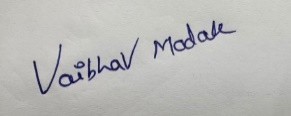 Vaibhav Modak